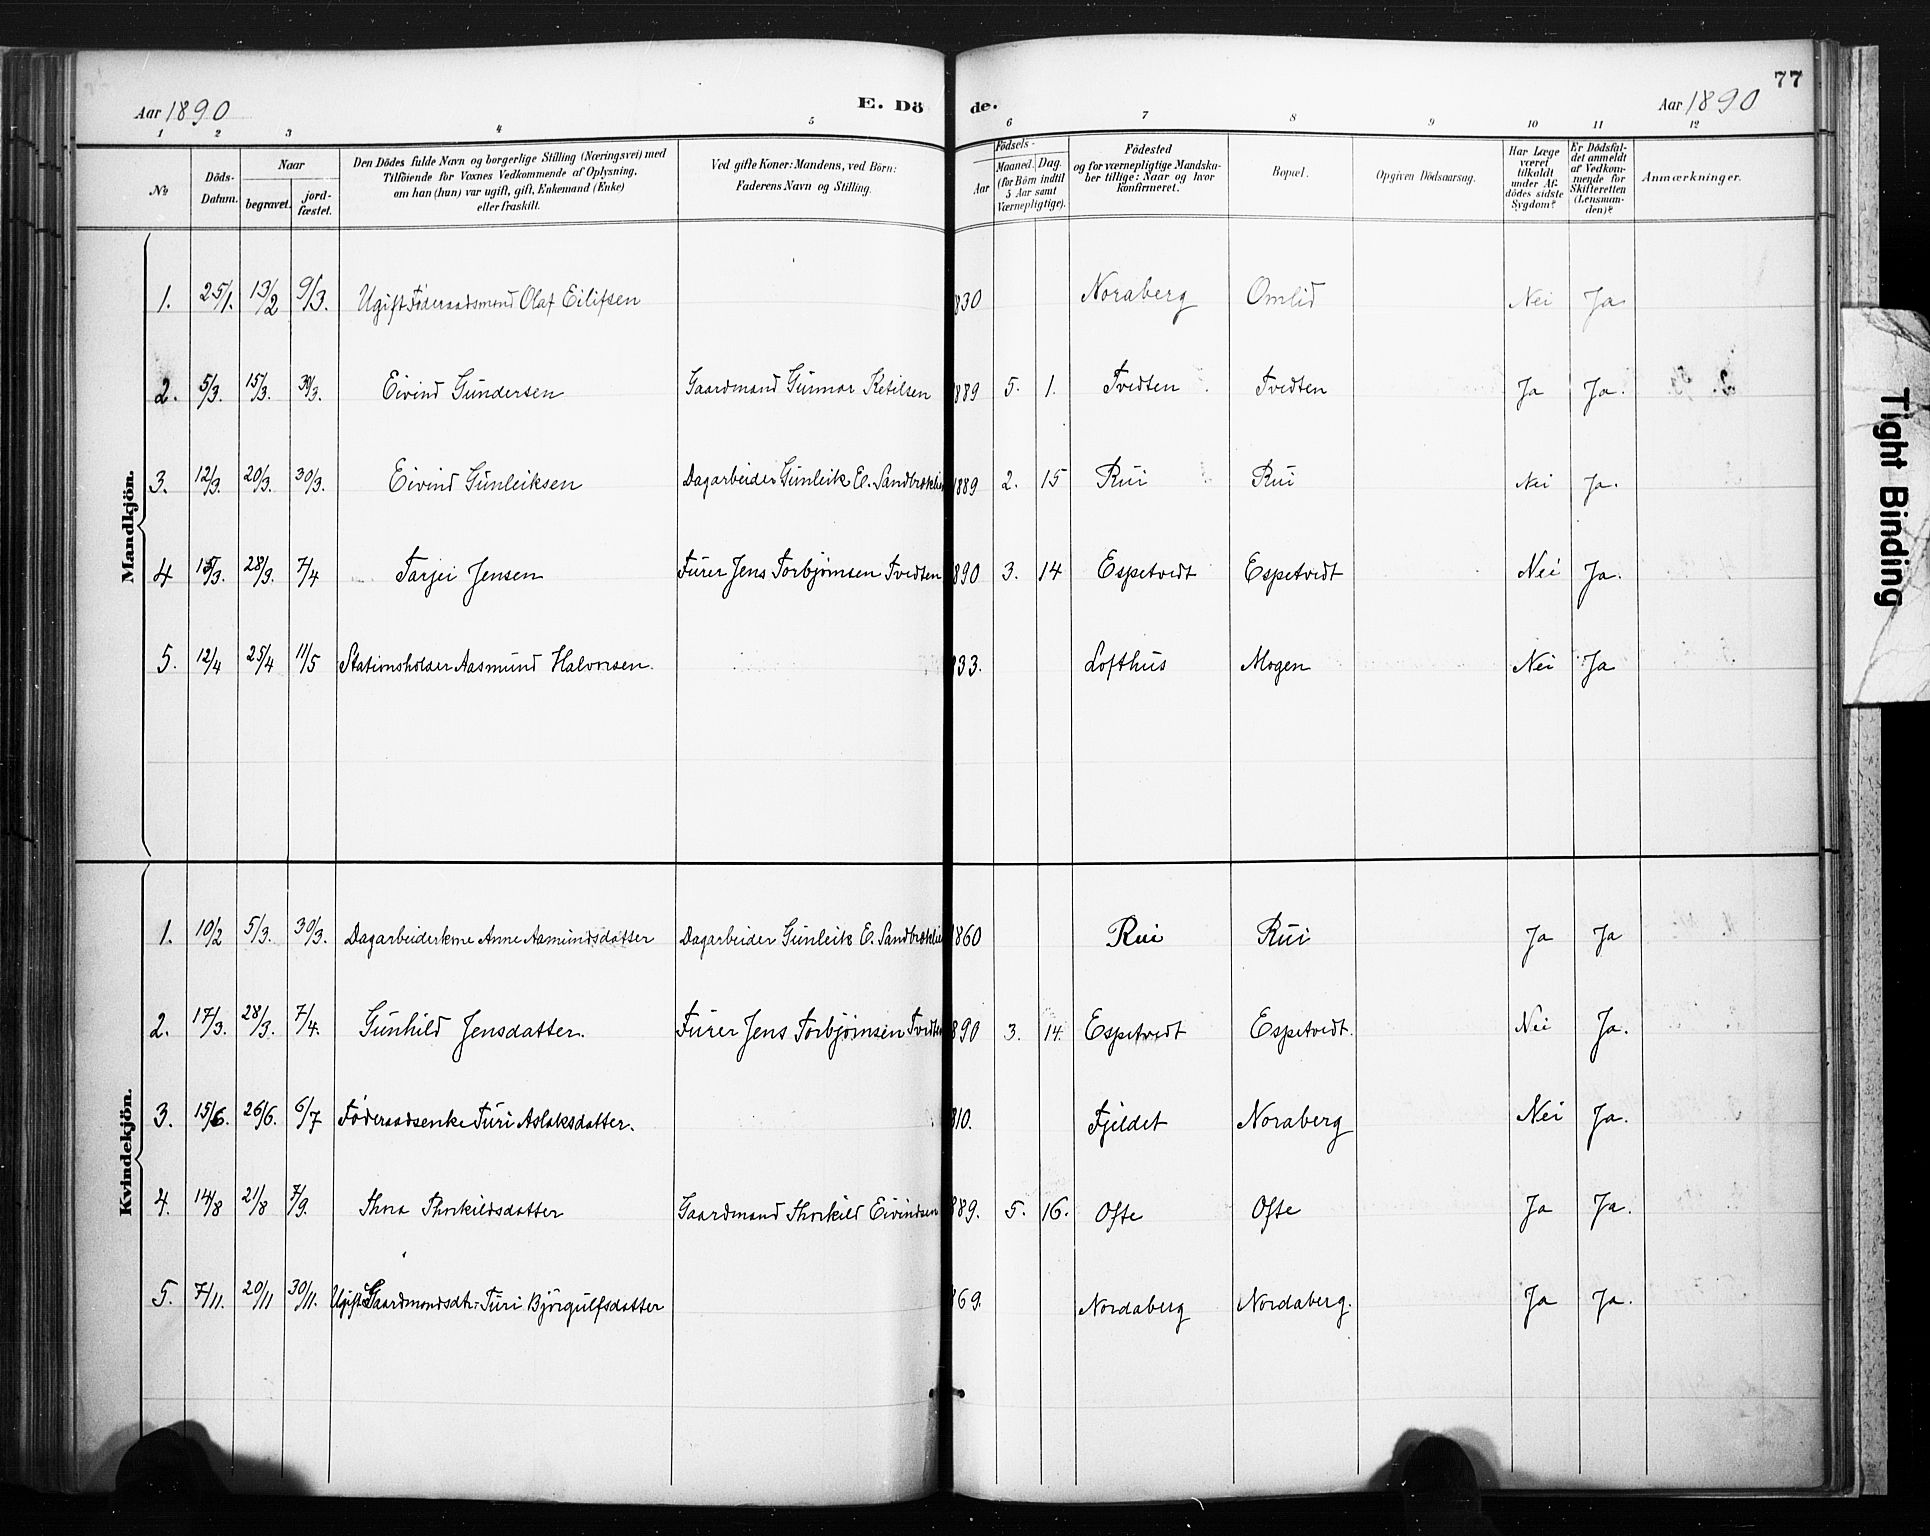 77
Aar 1890 E. Dö de. Aar 1890
1 2 3 4 5 6 7 8 9 10 11 12
№ Döds-Datum. Naar begravet. jord-fæstet. Den Dödes fulde Navn og borgerlige Stilling (Næringsvei) med Tilföiende for Voxnes Vedkommende af Oplysning, om han (hun) var ugift, gift, Enkemand (Enke) eller fraskilt. Ved gifte Koner: Mandens, ved Börn: Faderens Navn og Stilling. Födsels- Aar Maaned. Dag. (for Börn indtil 5 Aar samt Værnepligtige). Födested og for værnepligtige Mandska-ber tillige: Naar og hvor konfirmeret. Bopæl. Opgiven Dödsaarsag. Har Læge været tilkaldt under Af-dödes sidste Sygdom? Er Dödsfal-det anmeldt af Vedkom-mende for Skifteretten (Lensman-den)? Anmærkninger.
Mandkjön.
1. 25/1. 13/2 9/3. Ugift Föderaadsmand Olaf Eilifsen 830 Noraberg Omlid Nei Ja
2. 5/3. 15/3. 30/3. Eivind Gundersen Gaardmand Gunnar Ketilsen 889 5. 1. Tvedten Tvedten Ja Ja.
3. 12/3. 20/3. 30/3. Eivind Gunleiksen Dagarbeider Gunleik E. 1889 2. 15 Rui Rui Nei Ja.
4 15/3. 28/3. 7/4 Tarjei Jensen Furer Jens Torbjørnsen Tvedten 890 3. 14 Espetvedt Espetvedt Nei Ja.
5. 12/4 25/4 11/5 Stationsholder Aasmund Halvorsen. 833. Lofthus Mogen Nei Ja
Kvindekjön.
1. 10/2 5/3. 30/3. Dagarbeiderkone Anne Aamundsdatter Dagarbeider Gunleik E. 1860 Rui Rui Ja Ja
2. 17/3. 28/3. 7/4. Gunhild Jensdatter. Furer Jens Torbjørnsen Tvedten 890 3. 14. Espetvedt Espetvedt. Nei Ja.
3. 15/6. 26/6. 6/7 Föderaadsenke Turi Aslaksdatter. 810. Fjeldet Noraberg Nei Ja.
4. 14/8 21/8 7/9. Thora Thorkildsdatter Gaardmand Thorkild Eivindsen 889. 5. 16. Ofte Ofte Ja Ja.
5. 7/11. 20/11 30/11. Ugift Gaardmandsdtr. Turi Björgulfsdatter 869. Nordaberg Nordaberg. Ja Ja.
Tight Binding